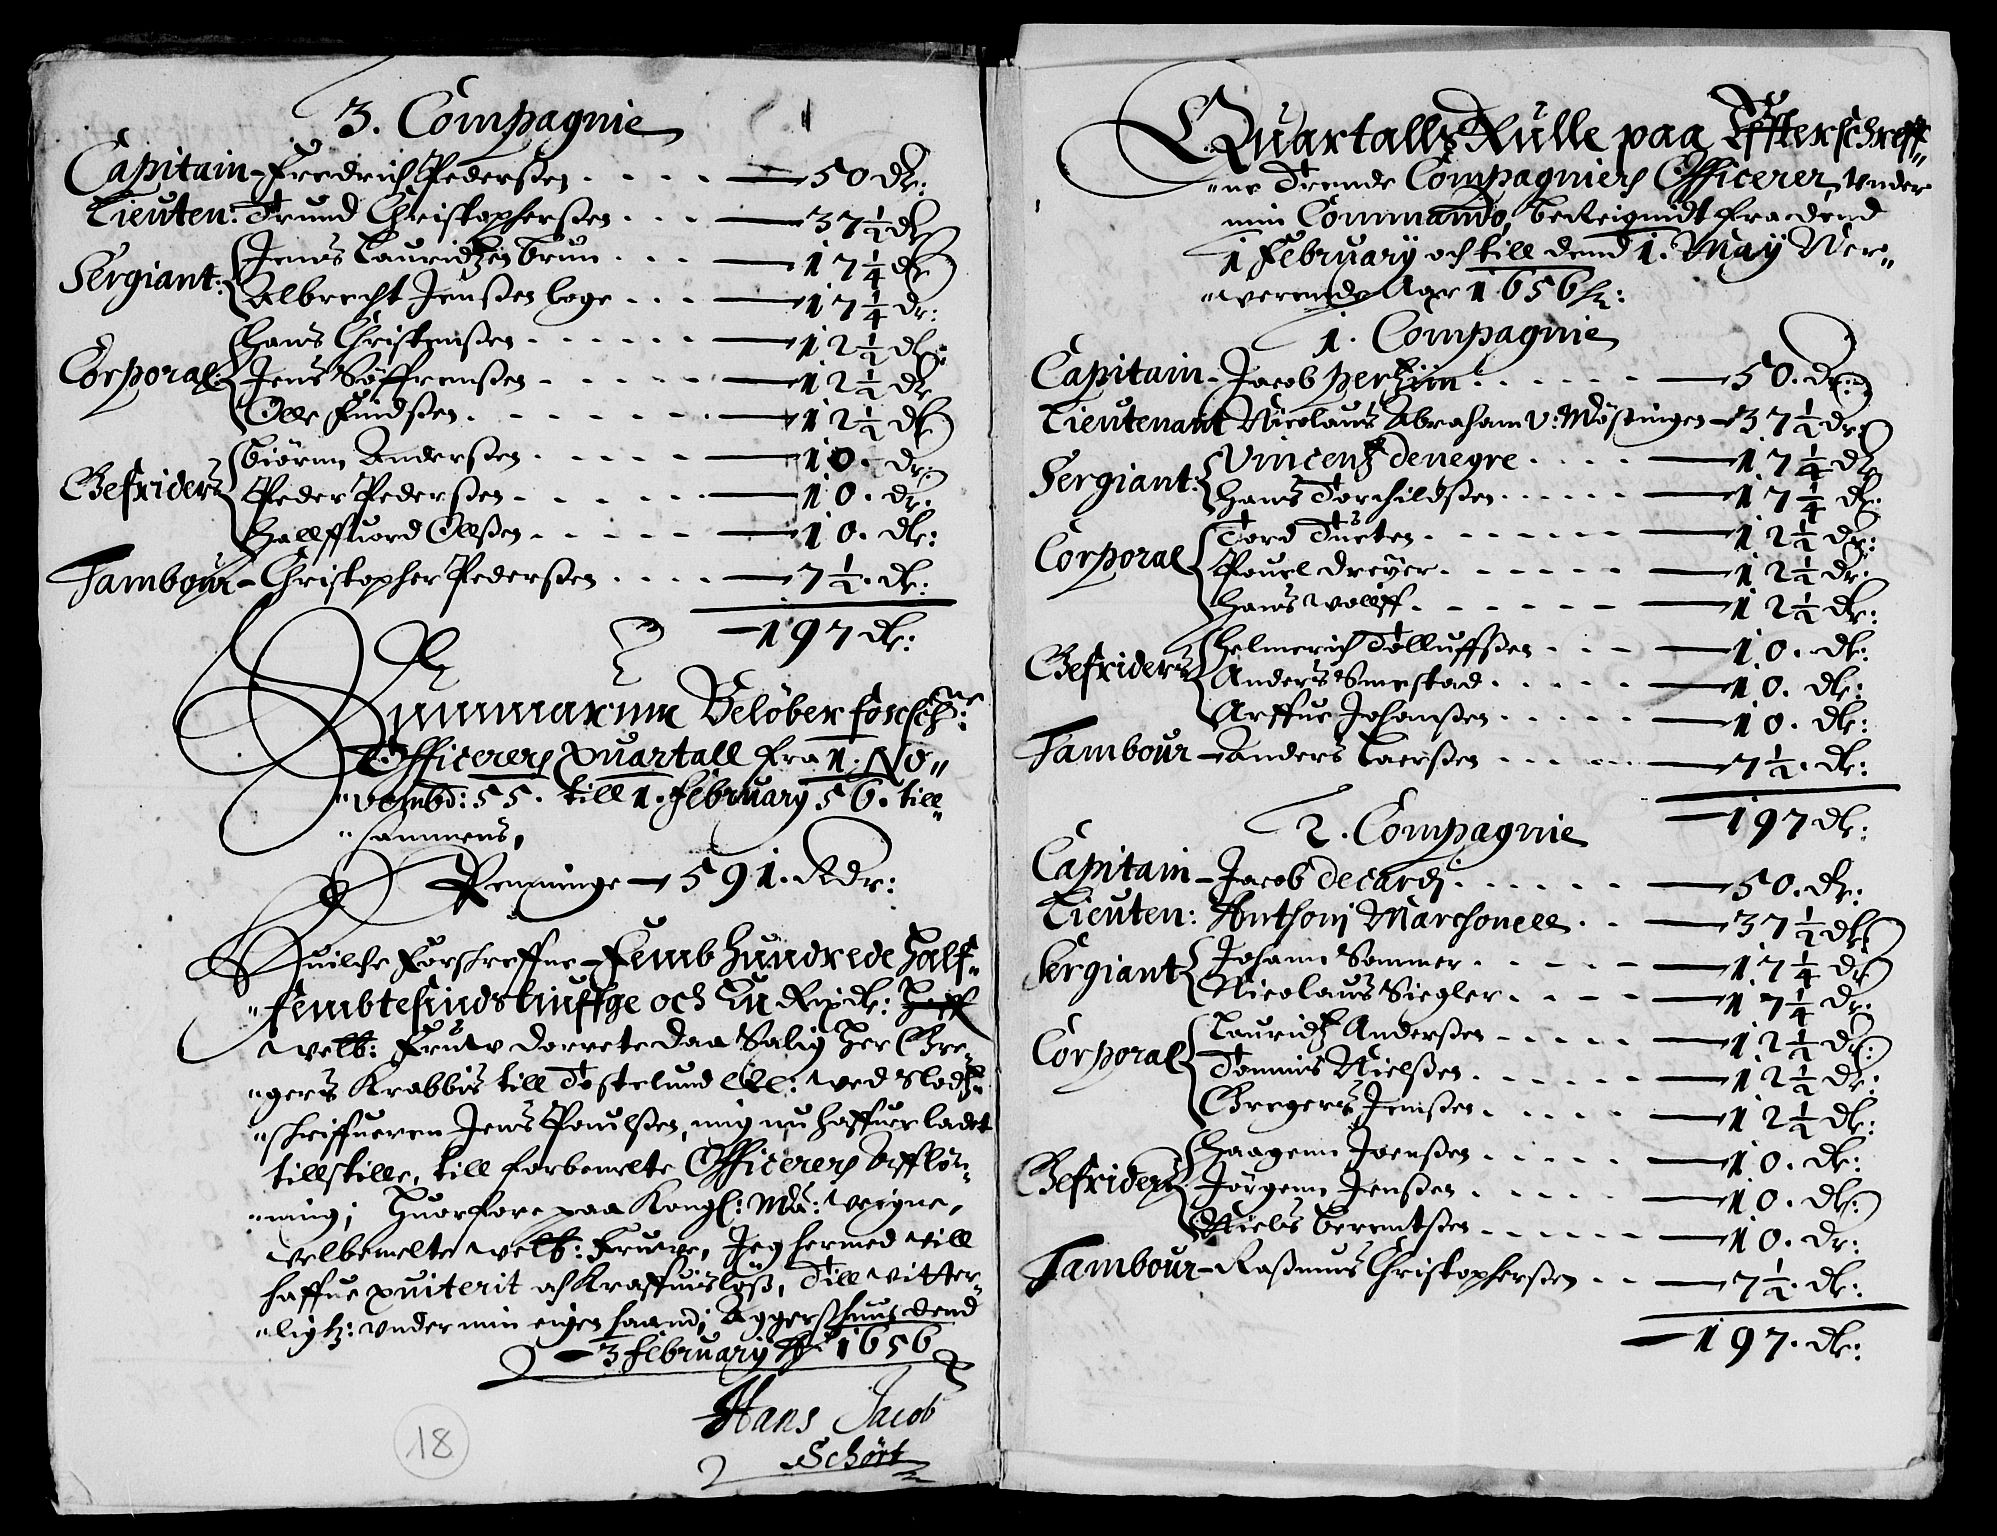 3. Compagnie
Capitain - Fredrich Pederßen . . . . — 50 dr:
Lieuten: Trund Christopherßen . . . — 37½ dr
Sergiant: Jens Lauridtzen Brun . . . — 17¼ dr
Albrecht Jenßen loge . . . — 17¼ dr:
Corporal Hans Christenßen . . . . . . — 12½ dr:
Jens Søffrenßen . . . . . . — 12½ dr
Olle Findßen . . . . . . . — 12½ dr
Gefriders Biörnn Anderßen . . . . . — 10. dr:
Peder Pederßen . . . . . . — 10. dr:
Hallffuord Ollßen . . . . . — 10. dr:
Tambour - Christopher Pederßen . . . . — 7½. dr:
— 197 dr:
Summarum Beløber forschne:
Officerers quartall fra 1. No„
„vembd: 55. till 1. February 56. till„
„sammens,
Penninge — 591. Rdr:
Huilche Forschreffne - Femb Hundrede Half„
„fembtesindstiuffge och En Rixdr:
welb: Fruw Dorrete Daa Salig Her Gre„
„gers Krabbis till Tostelund ved Slodtz„
„schriffueren Jens Poulßen, mig nu haffuer ladet
tillstille, till forbemelte Officerers Afflön„
„ning; Huorfore paa Kongl: Ma: weigne,
velbemelte welb: Fruwe, Jeg hermed will
haffue quiterit och Kraffuisløß, Till witter„
„ligh: under min eigen haand; Aggershuus dend
3 February Ao 1656
Hans Jacob
Schört
18
Quartalls Rulle paa Effterschreff„
„ne Trende Compagniers Officerer, Under
min Commando, bereignidt fra dend
1 February och till dend 1. May Ner„
„werende Aar 1656 :
1. Compagnie
Capitain - Jacob perhim . . . . . . — 50. dr:
Lieutenant Nicolaus Abraham v: Møstingen — 37½ dr:
Sergiant: Vincentz denegre . . . . — 17¼ dr
Hans Torchildßen . . . . . — 17¼ dr:
Corporal Tord Tueten . . . . . . — 12½ dr:
Pouel Dreyer . . . . . . — 12½ dr:
Hans Wolff . . . . . . — 12½ dr:
Gefriders Helmerich Tolluffßen . . . — 10. dr:
Anders Smestad . . . . . — 10. dr:
Arffue Johanßen . . . . . — 10. dr:
Tambour - Anders Laerßen . . . . . — 7½. dr:
— 197 dr:
2. Compagnie
Capitain - Jacob decardj . . . . . — 50. dr:
Lieuten: Anthonj Marchonell . . — 37½ dr
Sergiant Johann Sommer . . . . . — 17¼ dr
Nicolaus Siegler . . . . — 17¼ dr:
Corporal Lauridtz Anderßen . . . . . — 12½ dr:
Tommis Nielßen . . . . . . — 12½ dr:
Gregers Jenßen . . . . . — 12½ dr:
Gefriders Haagenn Joenßen . . . . . — 10. dr:
Jörgenn Jenßen . . . . . — 10. dr:
Niels Berentßen . . . . . . — 10. dr:
Tambour - Raßmus Christopherßen . . — 7½. dr:
— 197. dr: